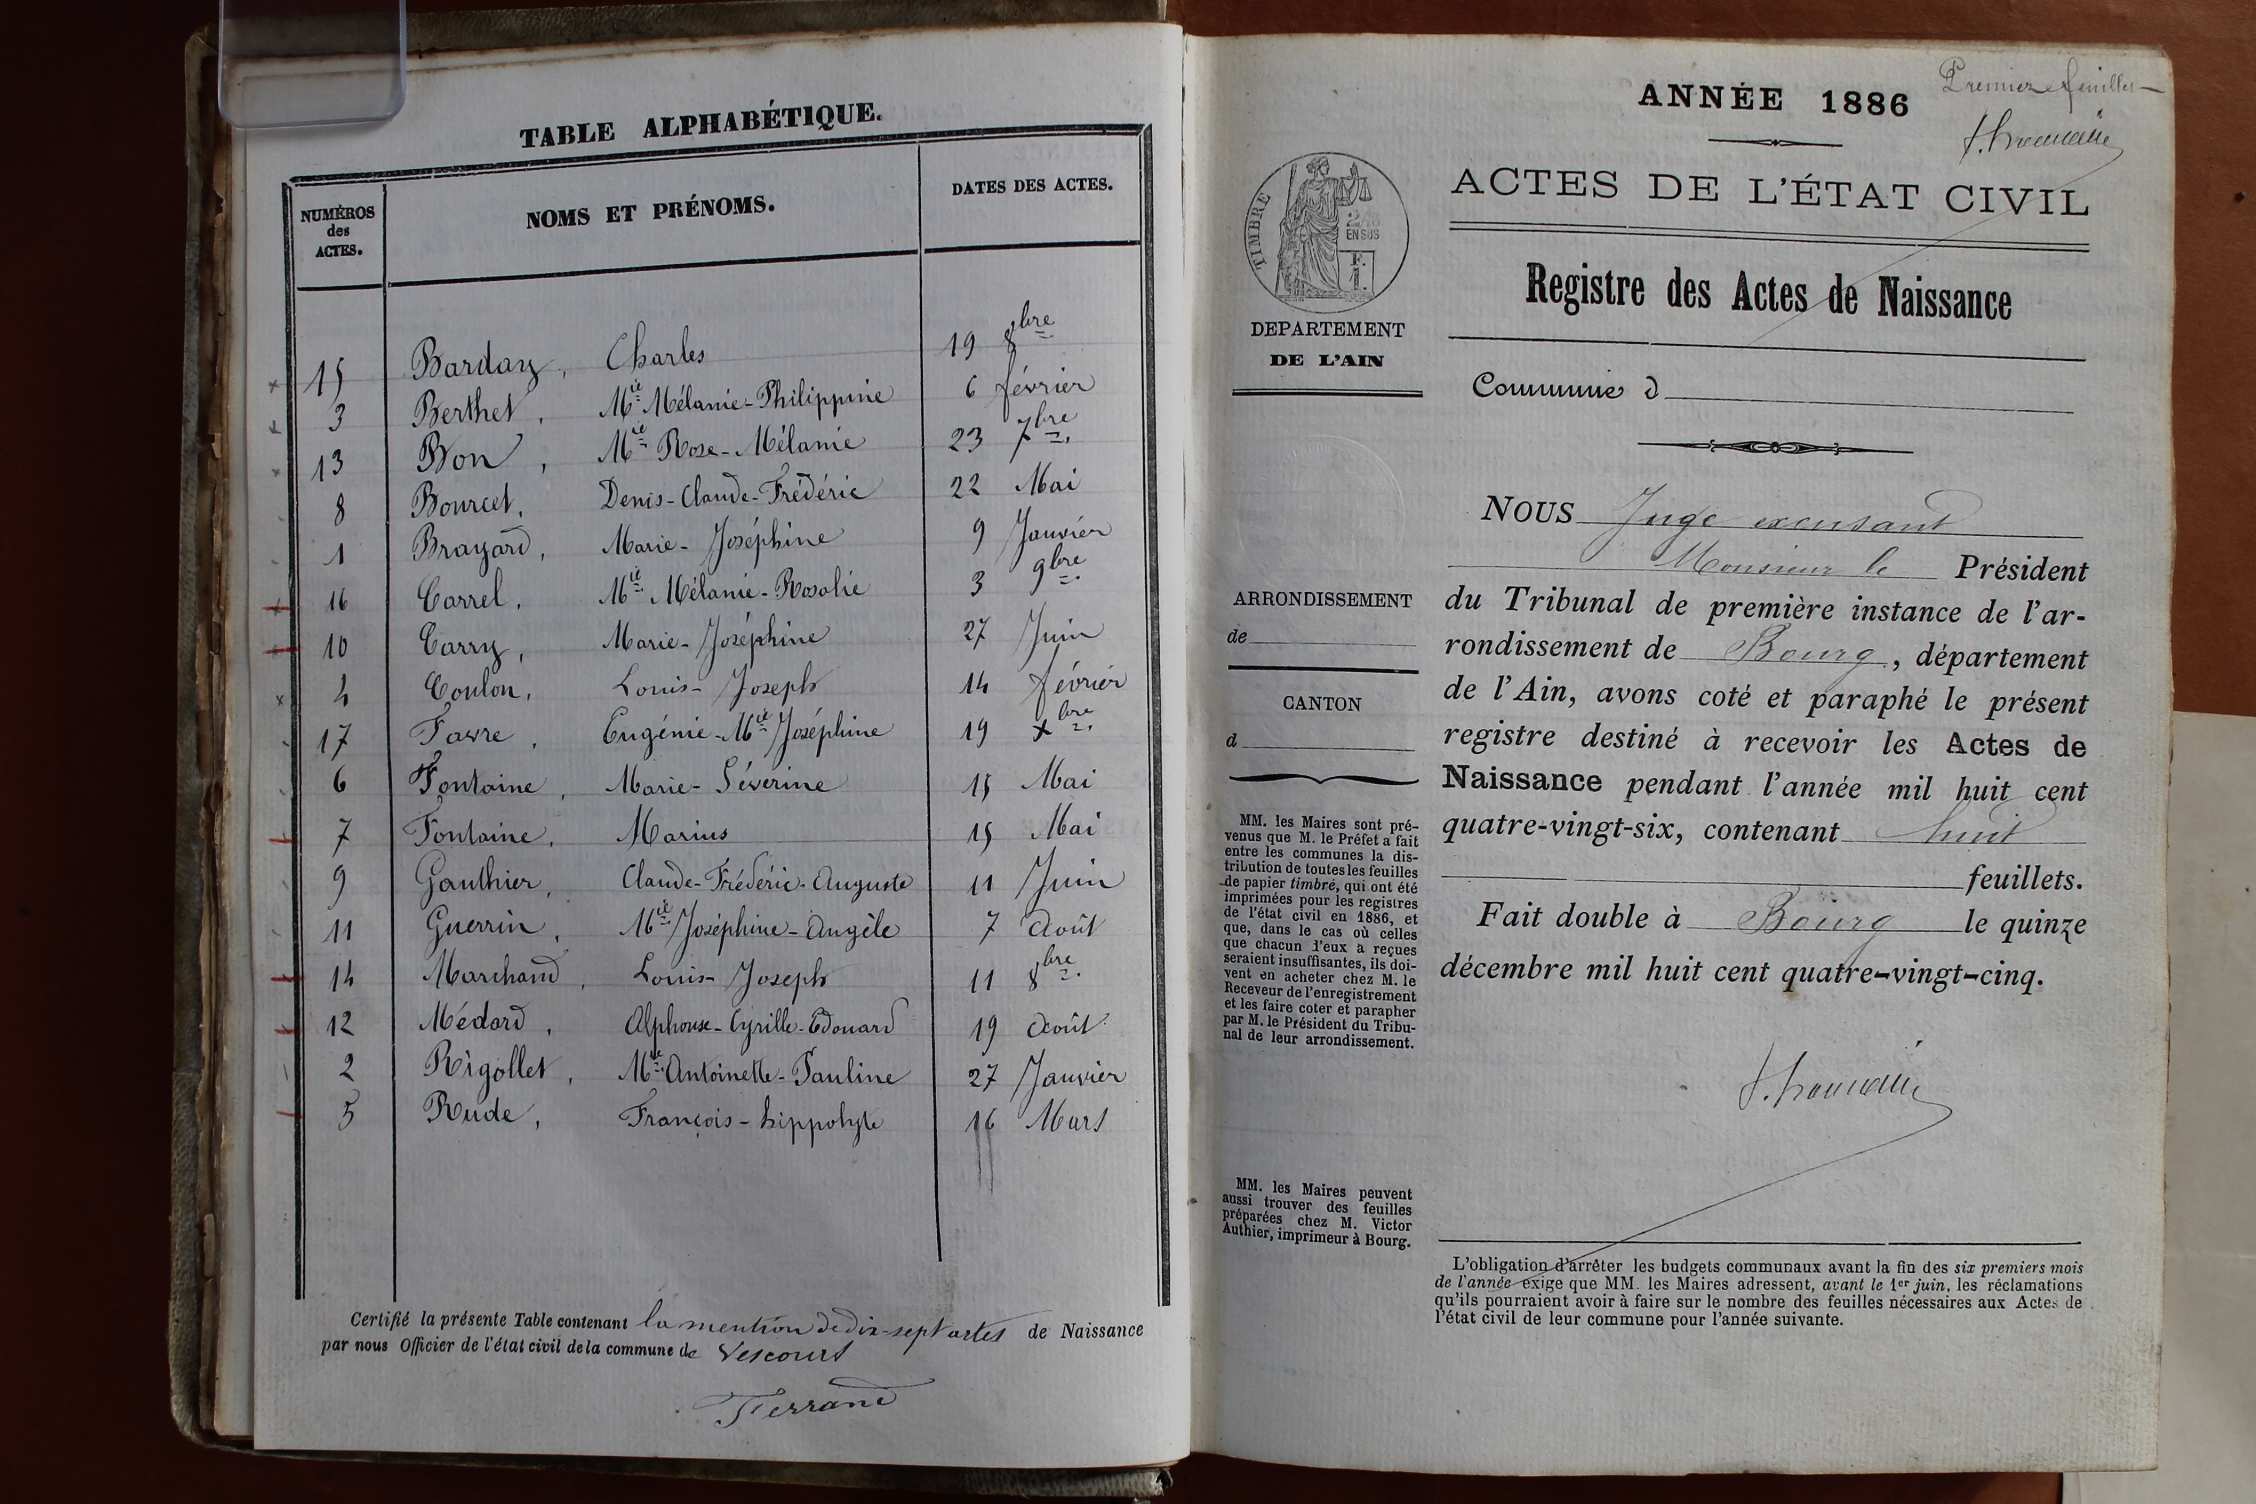 TABLE ALPHABÉTIQUE.
NUMÉROS des ACTES. NOMS ET PRÉNOMS. DATES DES ACTES.
15 Barday, Charles 19 8bre
3 Berthet, Mie Mélanie-Philippine 6 février
13 Bon, Mie Rose-Mélanie 23 7bre.
8 Bourcet, Denis-Claude-Frédéric 22 Mai
1 Brayard, Marie-Joséphine 9 Janvier
16 Carrel, Mie Mélanie-Rosalie 3 9bre.
10 Carry, Marie-Joséphine 27 Juin
4 Coulon, Louis-Joseph 14 février
17 Favre, Eugénie-Mie Joséphine 19 xbre.
6 Fontaine, Marie-Séverine 15 Mai
7 Fontaine, Marius 15 Mai
9 Gauthier, Claude-Frédéric-Auguste 11 Juin
11 Guerrin, Mie Joséphine-Angèle 7 Août
14 Marchand, Louis-Joseph 11 8bre.
12 Médard, Alphonse-Cyrille-Edouard 19 Août
2 Rigollet, Mie Antoinette-Pauline 27 Janvier
5 Rude, François-hippolyte 16 Mars
Certifié la présente Table contenant la mention de dix-sept actes de Naissance
par nous Officier de l'état civil de la commune de Vescours
Ferrand
Premier feuillet
ANNÉE 1886
ACTES DE L'ÉTAT CIVIL
Registre des Actes de Naissance
TIMBRE
2/10
EN SUS
F.
1.
DEPARTEMENT
DE L'AIN
Commune d
NOUS Juge excusant
Monsieur le Président
du Tribunal de première instance de l'ar-
rondissement de Bourg, département
de l'Ain, avons coté et paraphé le présent
registre destiné à recevoir les Actes de
Naissance pendant l'année mil huit cent
quatre-vingt-six, contenant huit
feuillets.
Fait double à Bourg le quinze
décembre mil huit cent quatre-vingt-cinq.
ARRONDISSEMENT
de
CANTON
d
MM. les Maires sont pré-
venus que M. le Préfet a fait
entre les communes la dis-
tribution de toutes les feuilles
de papier timbré, qui ont été
imprimées pour les registres
de l'état civil en 1886, et
que, dans le cas où celles
que chacun d'eux a reçues
seraient insuffisantes, ils doi-
vent en acheter chez M. le
Receveur de l'enregistrement
et les faire coter et parapher
par M. le Président du Tribu-
nal de leur arrondissement.
MM. les Maires peuvent
aussi trouver des feuilles
préparées chez M. Victor
Authier, imprimeur à Bourg.
L'obligation d'arrêter les budgets communaux avant la fin des six premiers mois
de l'année exige que MM. les Maires adressent, avant le 1er juin, les réclamations
qu'ils pourraient avoir à faire sur le nombre des feuilles nécessaires aux Actes de
l'état civil de leur commune pour l'année suivante.